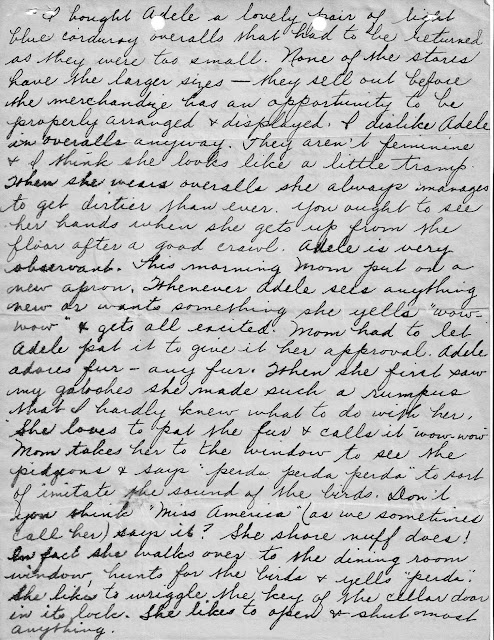 I bought Adele a lovely pair of light
blue corduroy overalls that had to be returned
as they were too small. None of the stores
have the larger sizes — they sell out before
the merchandize has an opportunity to be
properly arranged & displayed. I dislike Adele
in overalls anyway. They aren't feminine
& I think she looks like a little tramp.
When she wears overalls she always manages
to get dirtier than ever. You ought to see
her hands when she gets up from the
floor after a good crawl. Adele is very
observant. This morning Mom put on a
new apron. Whenever Adele sees anything
new or wants something she yells "wow-
wow" & gets all excited. Mom had to let
Adele pat it to give it her approval. Adele
adores fur - any fur. When she first saw
my galoshes she made such a rumpus
that I hardly knew what to do with her.
She loves to pat the fur & calls it "wow-wow"
Mom takes her to the window to see the
pidgeons & says "perda perda perda" to sort
of imitate the sound of the birds. Don't
you think "Miss America" (as we sometimes
call her) says it? She shore nuff does!
In fact she walks over to the dining room
window, hunts for the birds & yells "perda".
She likes to wriggle the key of the cellar door
in its lock. She likes to open & shut most
anything.